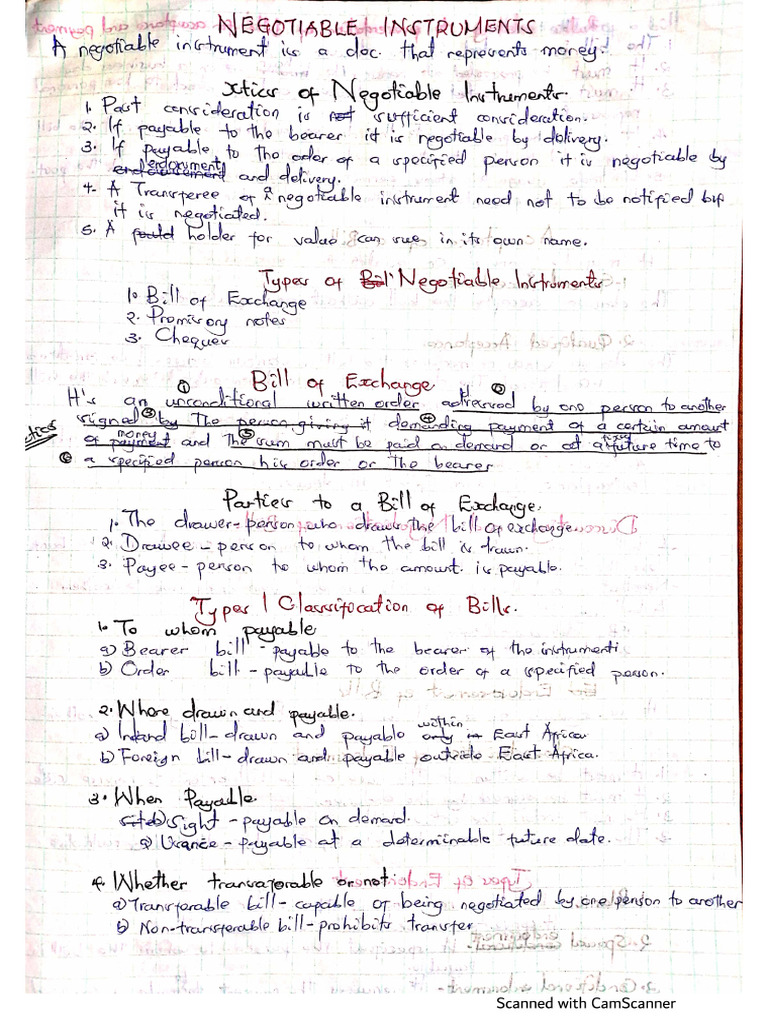 NEGOTIABLE INSTRUMENTS
A negotiable instrument is a doc. that represents money.
xtics of Negotiable Instruments.
1. Past consideration is not sufficient consideration.
2. If payable to the bearer it is negotiable by delivery.
3. If payable to the order of a specified person it is negotiable by
endorsement and delivery.
4. A Transferee of a negotiable instrument need not to be notified bif
it is negotiated.
5. A could holder for value can sue in its own name.
Types of Bil Negotiable Instruments
1. Bill of Exchange
2. Promisory notes
3. Cheques
Bill of Exchange
It's an ① unconditional written order addressed ② by one person to another
signed ③ by The person giving it demanding ④ payment of a certain amount
of payment money and The ⑤ sum must be paid on demand or at a fixed future time to
⑥ a specified person his order or The bearer
Parties to a Bill of Exchange.
1. The drawer - person who draws the bill of exchange
2. Drawee - person to whom the bill is drawn.
3. Payee - person to whom the amount is payable.
Types / Classification of Bills.
1. To whom payable
a) Bearer bill - payable to the bearer of the instrument
b) Order bill - payable to the order of a specified person.
2. Where drawn and payable.
a) Inland bill - drawn and payable only in within East Africa
b) Foreign bill - drawn and payable outside East Africa.
3. When Payable
b) Sight - payable on demand.
a) Usance - payable at a determinable future date.
4. Whether transferable or not
a) Transferable bill - capable of being negotiated by one person to another
b) Non-transferable bill - prohibits transfer
Scanned with CamScanner